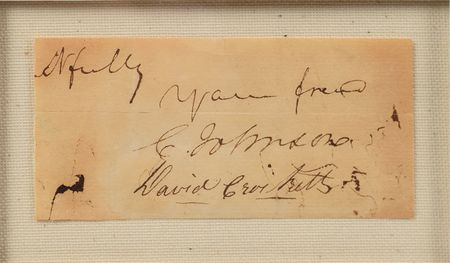 tfully
Your friend
C. Johnson
David Crockett